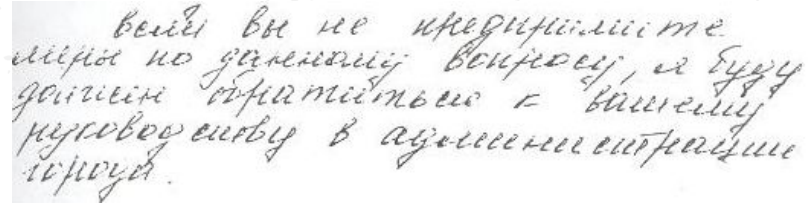 если вы не предпримите
меры по данному вопросу, я буду
должен обратиться к вашему
руководству в администрации
города.